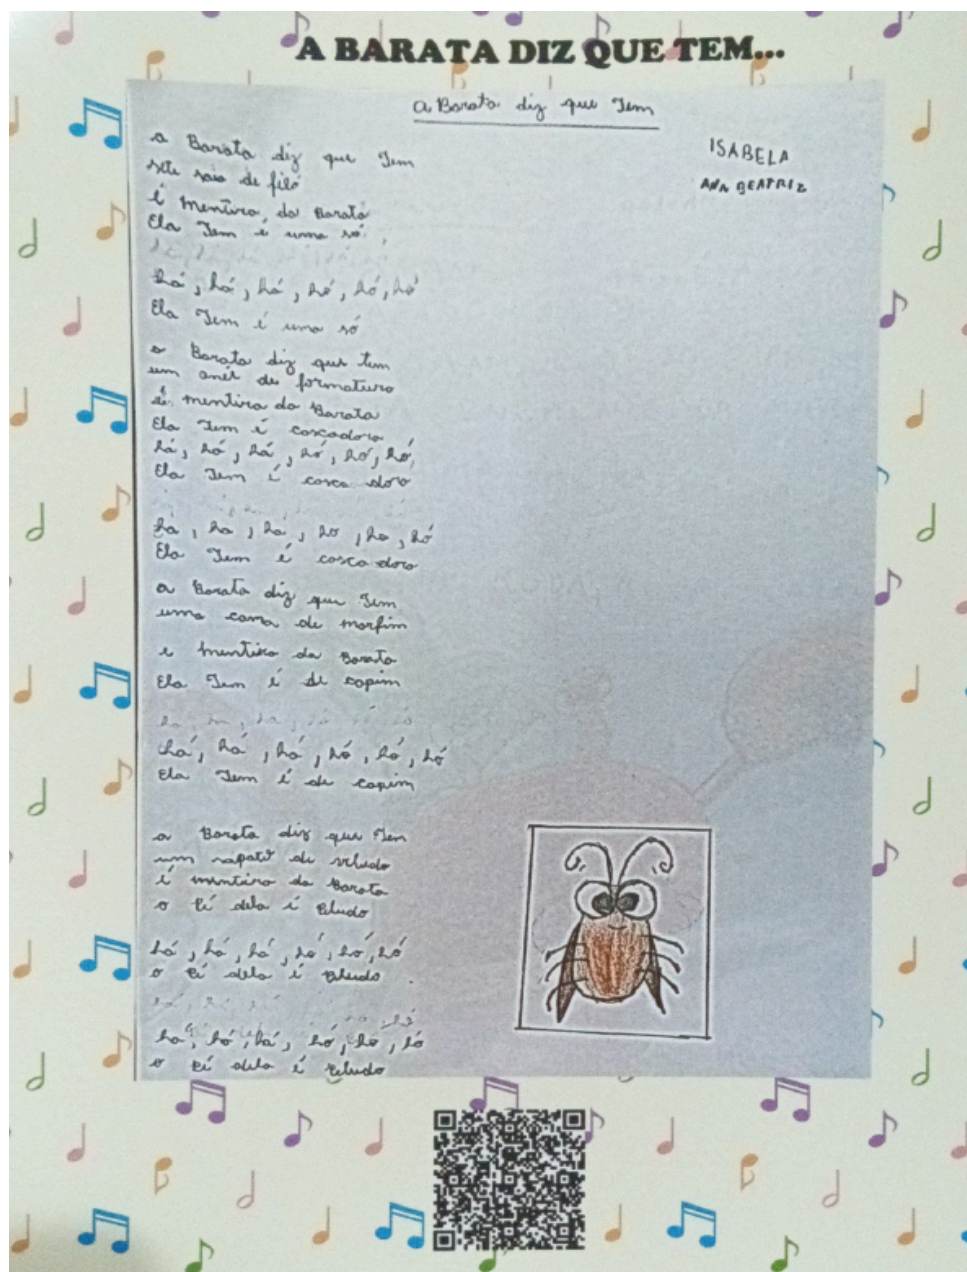 A BARATA DIZ QUE TEM...
a Barata diz que Tem
ISABELA
ANA BEATRIZ
a Barata diz que Tem
sete saia de filó
é mentira da Barata
Ela Tem é uma só
há, há, há, hó, hó, hó
Ela Tem é uma só
a Barata diz que tem
um anél de formatura
é mentira da Barata
Ela Tem é coscadora
há, há, há, hó, hó, hó,
Ela Tem é cosca dora
há, ha, há, ho, ho, hó
Ela Tem é cosca dora
a Barata diz que Tem
uma cama de morfim
e mentira da Barata
Ela Tem é de capim
há, há, há, hó, hó, hó
Ela Tem é de capim
a Barata diz que Tem
um sapato de veludo
é mentira da Barata
o Pé dela é Peludo
há, há, há, hó, hó, hó
o Pé dela é Peludo
há, há, há, hó, hó, hó
o Pé dela é Peludo